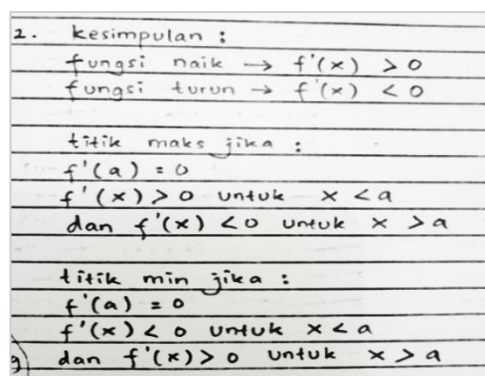 2. kesimpulan :
fungsi naik → f'(x) > 0
fungsi turun → f'(x) < 0
titik maks jika :
f'(a) = 0
f'(x) > 0 untuk x < a
dan f'(x) < 0 untuk x > a
titik min jika :
f'(a) = 0
f'(x) < 0 untuk x < a
dan f'(x) > 0 untuk x > a